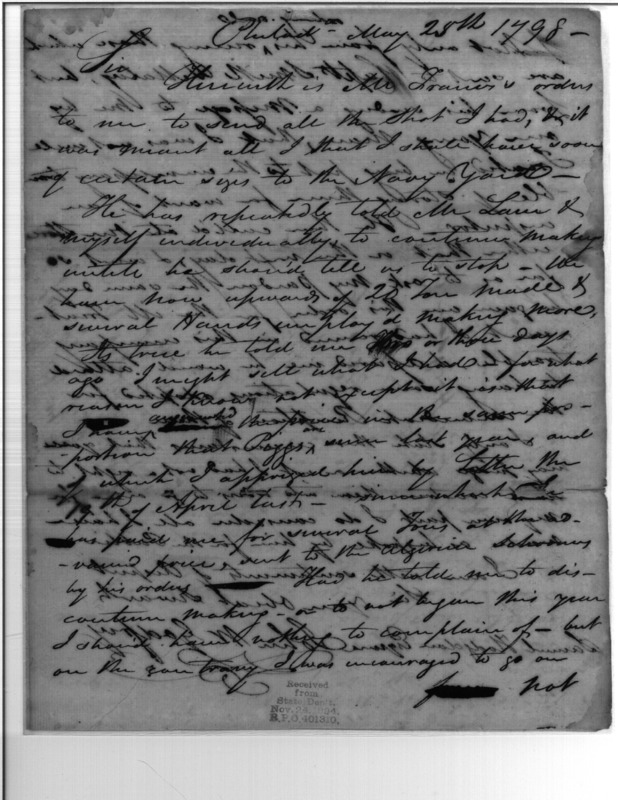 Philad. May 28th 1798 -
Sir
Herewith is Mr. Francis's orders
to me to send all the Shot I had, & it
was meant all I that I should have soon
of certain sizes to the Navy Yard -
He has repeatedly told Mr. Lane &
myself individually, to continue making
untill he should tell us to stop - We
have now upwards of 20 Ton made &
several Hands employ'd making more,
Its true he told me two or three days
ago I might sell what I had - for what
reason I know not except it is that
I have the price in the same pro-
portion that Boggs, were last year, and
of which I apprized him by letter the
19th of April last -
has paid me for several Tons at the ad-
vanced price & sent to the Algerine Schooners
by his orders Had he told me to dis-
continue making - or to not began this year
I should have nothing to complain of - but
on the contrary I was encouraged to go on
not
Received
from
State Dep't.
B.F.O. 401310,